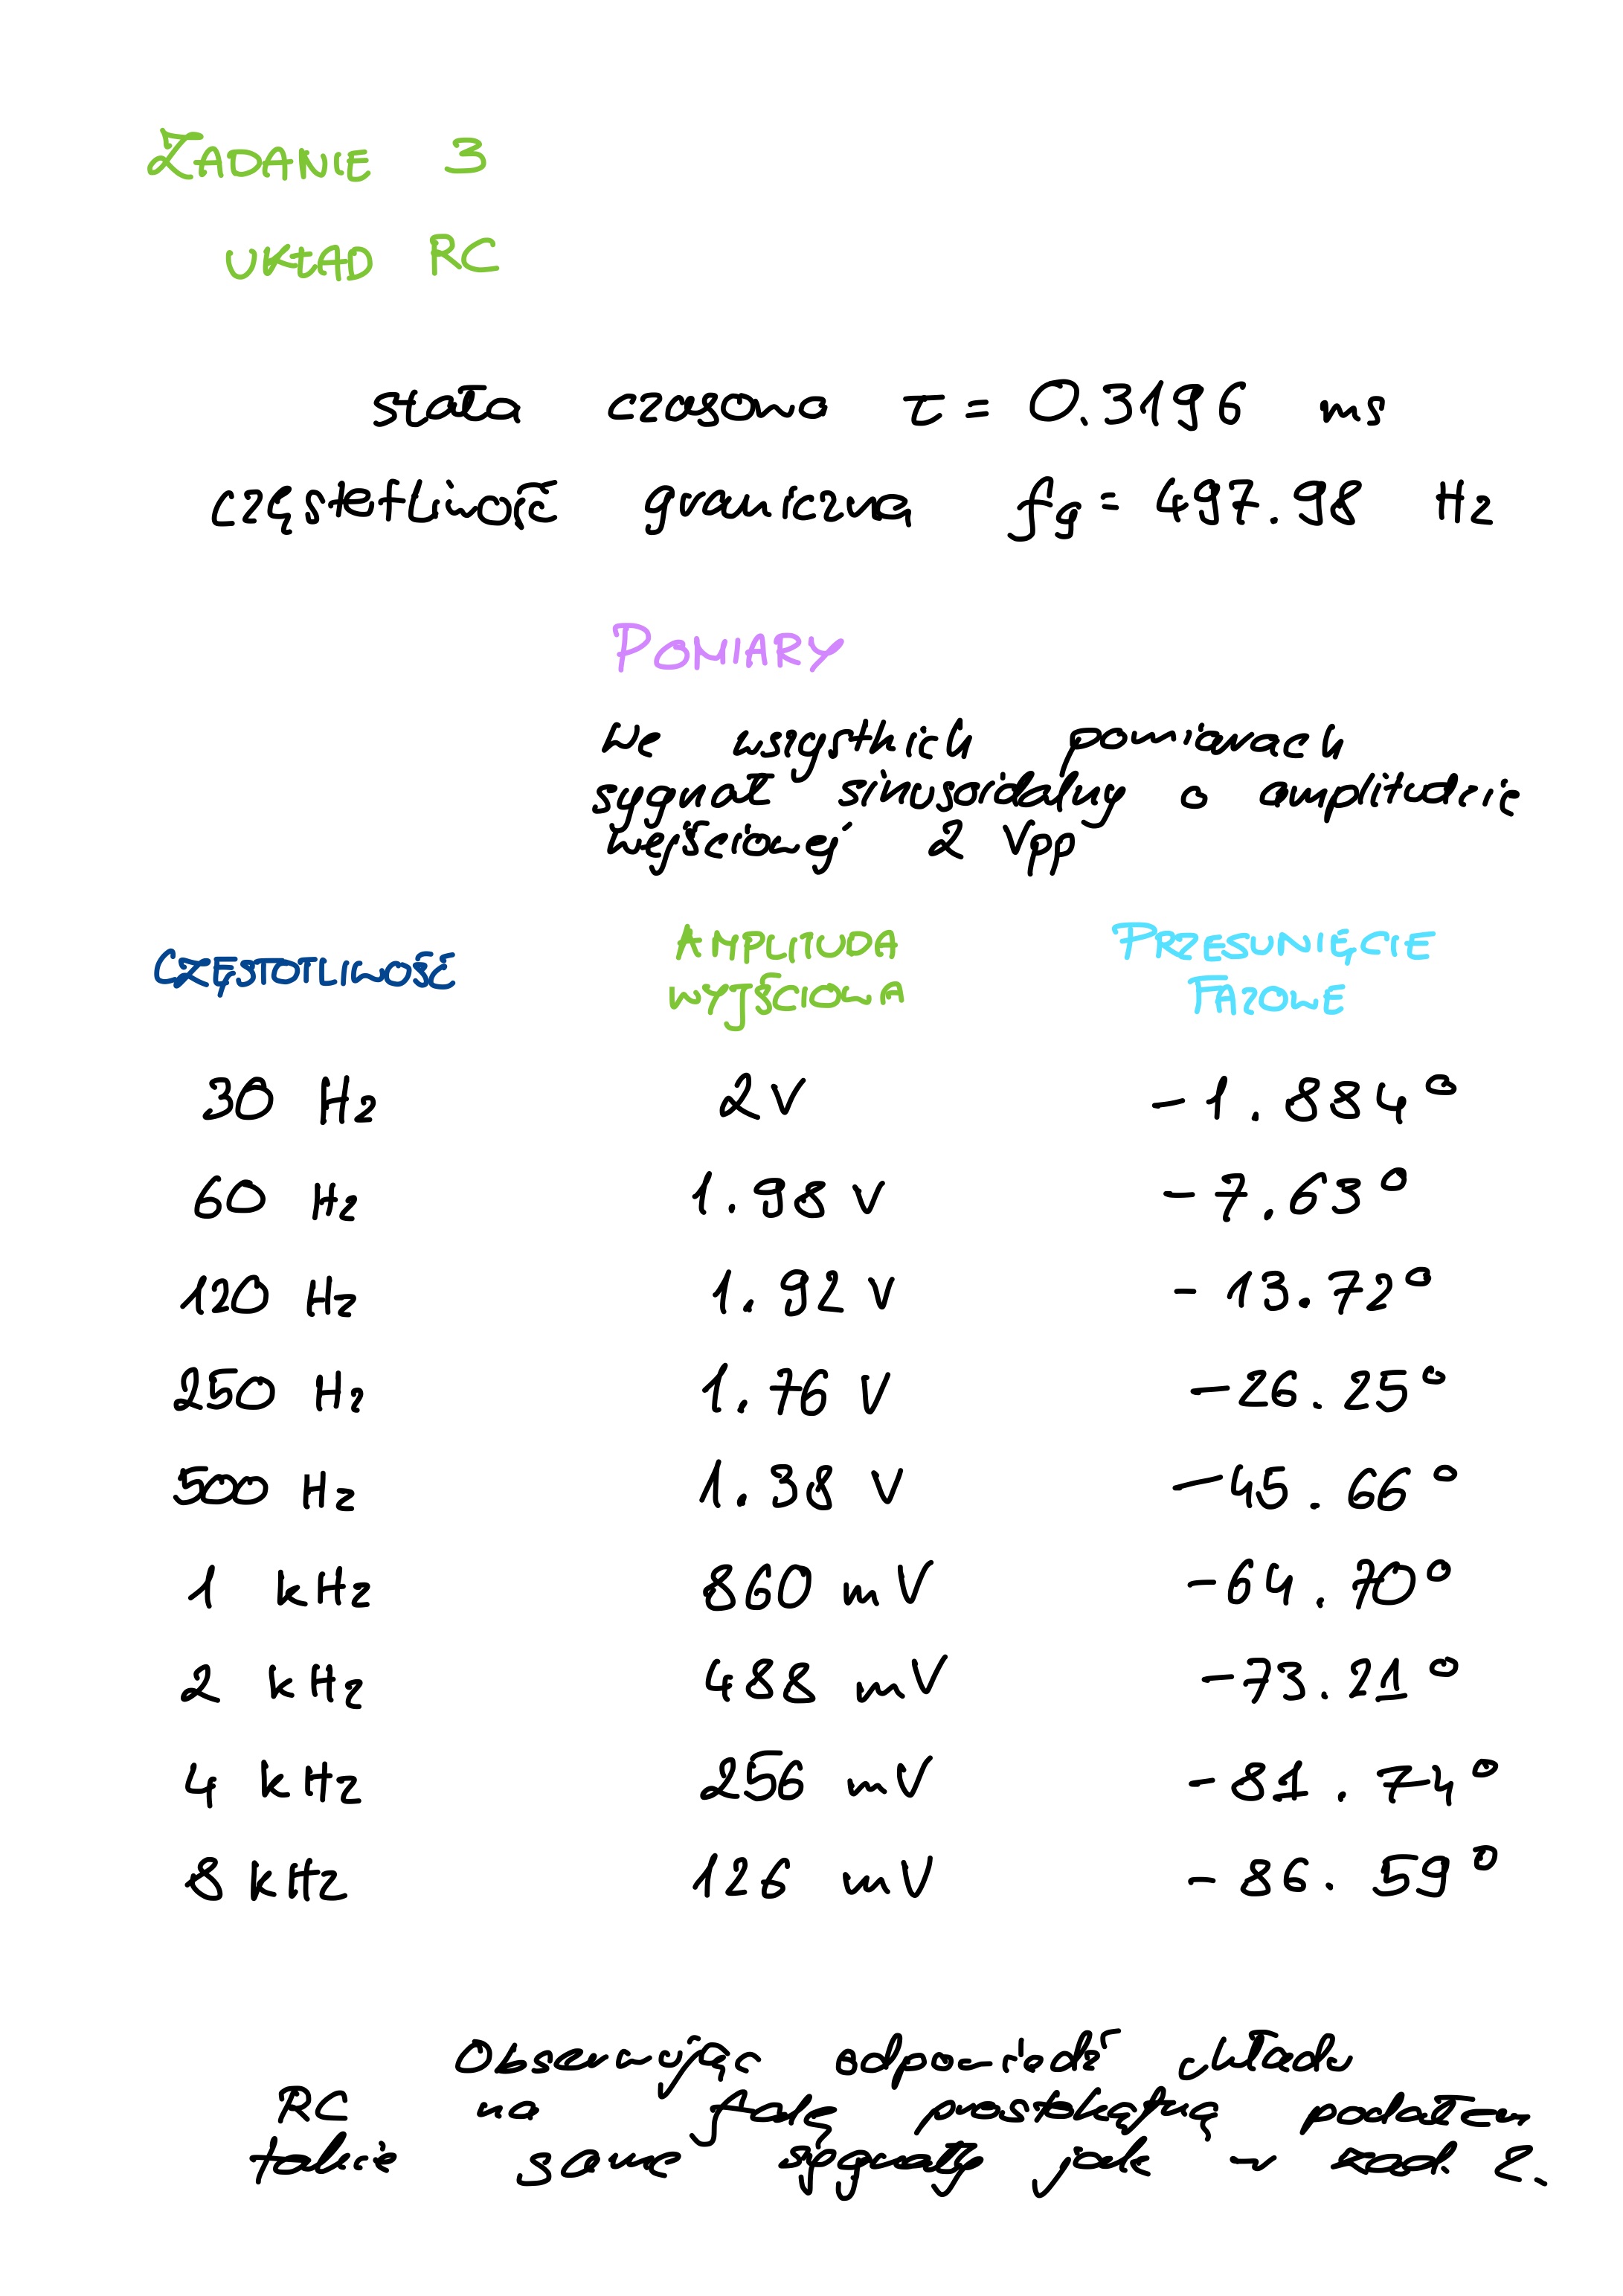 ZADANIE 3
UKŁAD RC
stała czasowa τ = 0.3196 ms
częstotliwość graniczna fg = 497.98 Hz
POMIARY
We wszystkich pomiarach
sygnał sinusoidalny o amplitudzie
wejściowej 2 Vpp
CZĘSTOTLIWOŚĆ AMPLIUDA PRZESUNIĘCIE
WYJŚCIOWA FAZOWE
30 Hz 2V -1.884°
60 Hz 1.98 V -7.63°
120 Hz 1.92 V -13.72°
250 Hz 1.76 V -26.25°
500 Hz 1.38 V -45.66°
1 kHz 860 mV -64.70°
2 kHz 488 mV -73.21°
4 kHz 256 mV -81.74°
8 kHz 126 mV -86.59°
Obserwując odpowiedź układu
RC na falę prostokątną podałem
takie same sygnały jak w zad. 2.